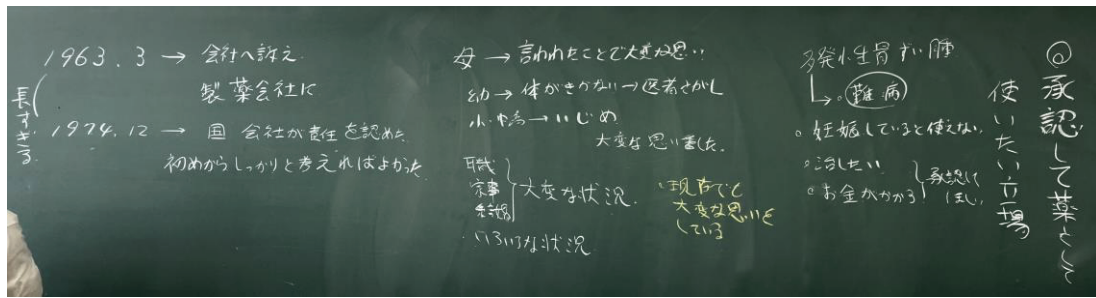 ◎承認して薬として
使いたい立場
多発性骨ずい腫
難病
・妊娠していると使えない
・治したい
・お金がかかる
承認して
ほしい
母→言われたことで大変な思い
幼→体がきかない→医者さがし
小・中→いじめ
大変な思いをした。
職
家事
大変な状況
・いろいろな状況
・現在でも
大変な思いを
している
1963.3→会社へ訴え
製薬会社に
1974.12→国 会社が責任を認めた
初めからしっかりと考えればよかった
長すぎる